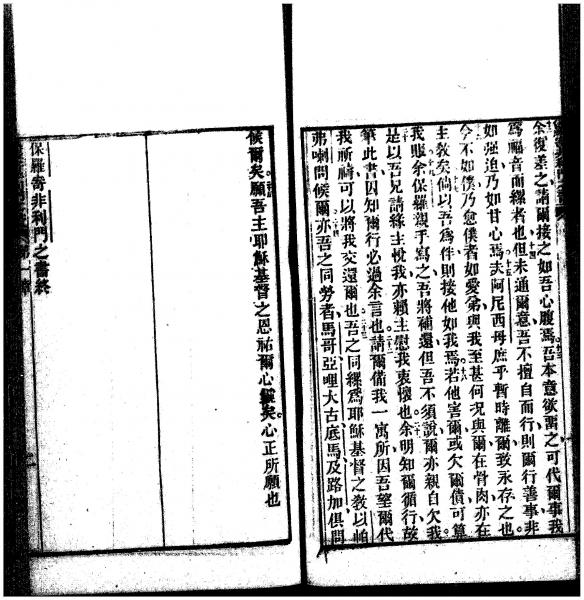 余復差之請爾接之如吾心腹焉吾本意欲畱之可代爾事我
為福音而縲者也但未通爾意吾不擅自而行則爾行善事非
如强迫乃如甘心焉夫阿尼西母庶乎暫時離爾致永存之也
今不如僕乃愈僕者如愛弟與我至甚何况與爾在骨肉亦在
主教矣倘以吾為伴則接他如我焉若他害爾或欠爾債可算
我賬余保羅親手寫之吾將補還但吾不須說爾亦親自欠我
是以吾兄請緣主悅我亦賴主慰我衷懷也余明知爾循行故
筆此書因知爾行必過余言也請爾備我一寓所因吾望爾代
我祈禱可以將我交還爾也吾之同縲為耶穌基督之教以帕
弗喇問候爾亦吾之同勞者馬哥亞哩大古底馬及路加俱問
候爾矣願吾主耶穌基督之恩祐爾心靈矣心正所願也
保羅寄非利門之書終